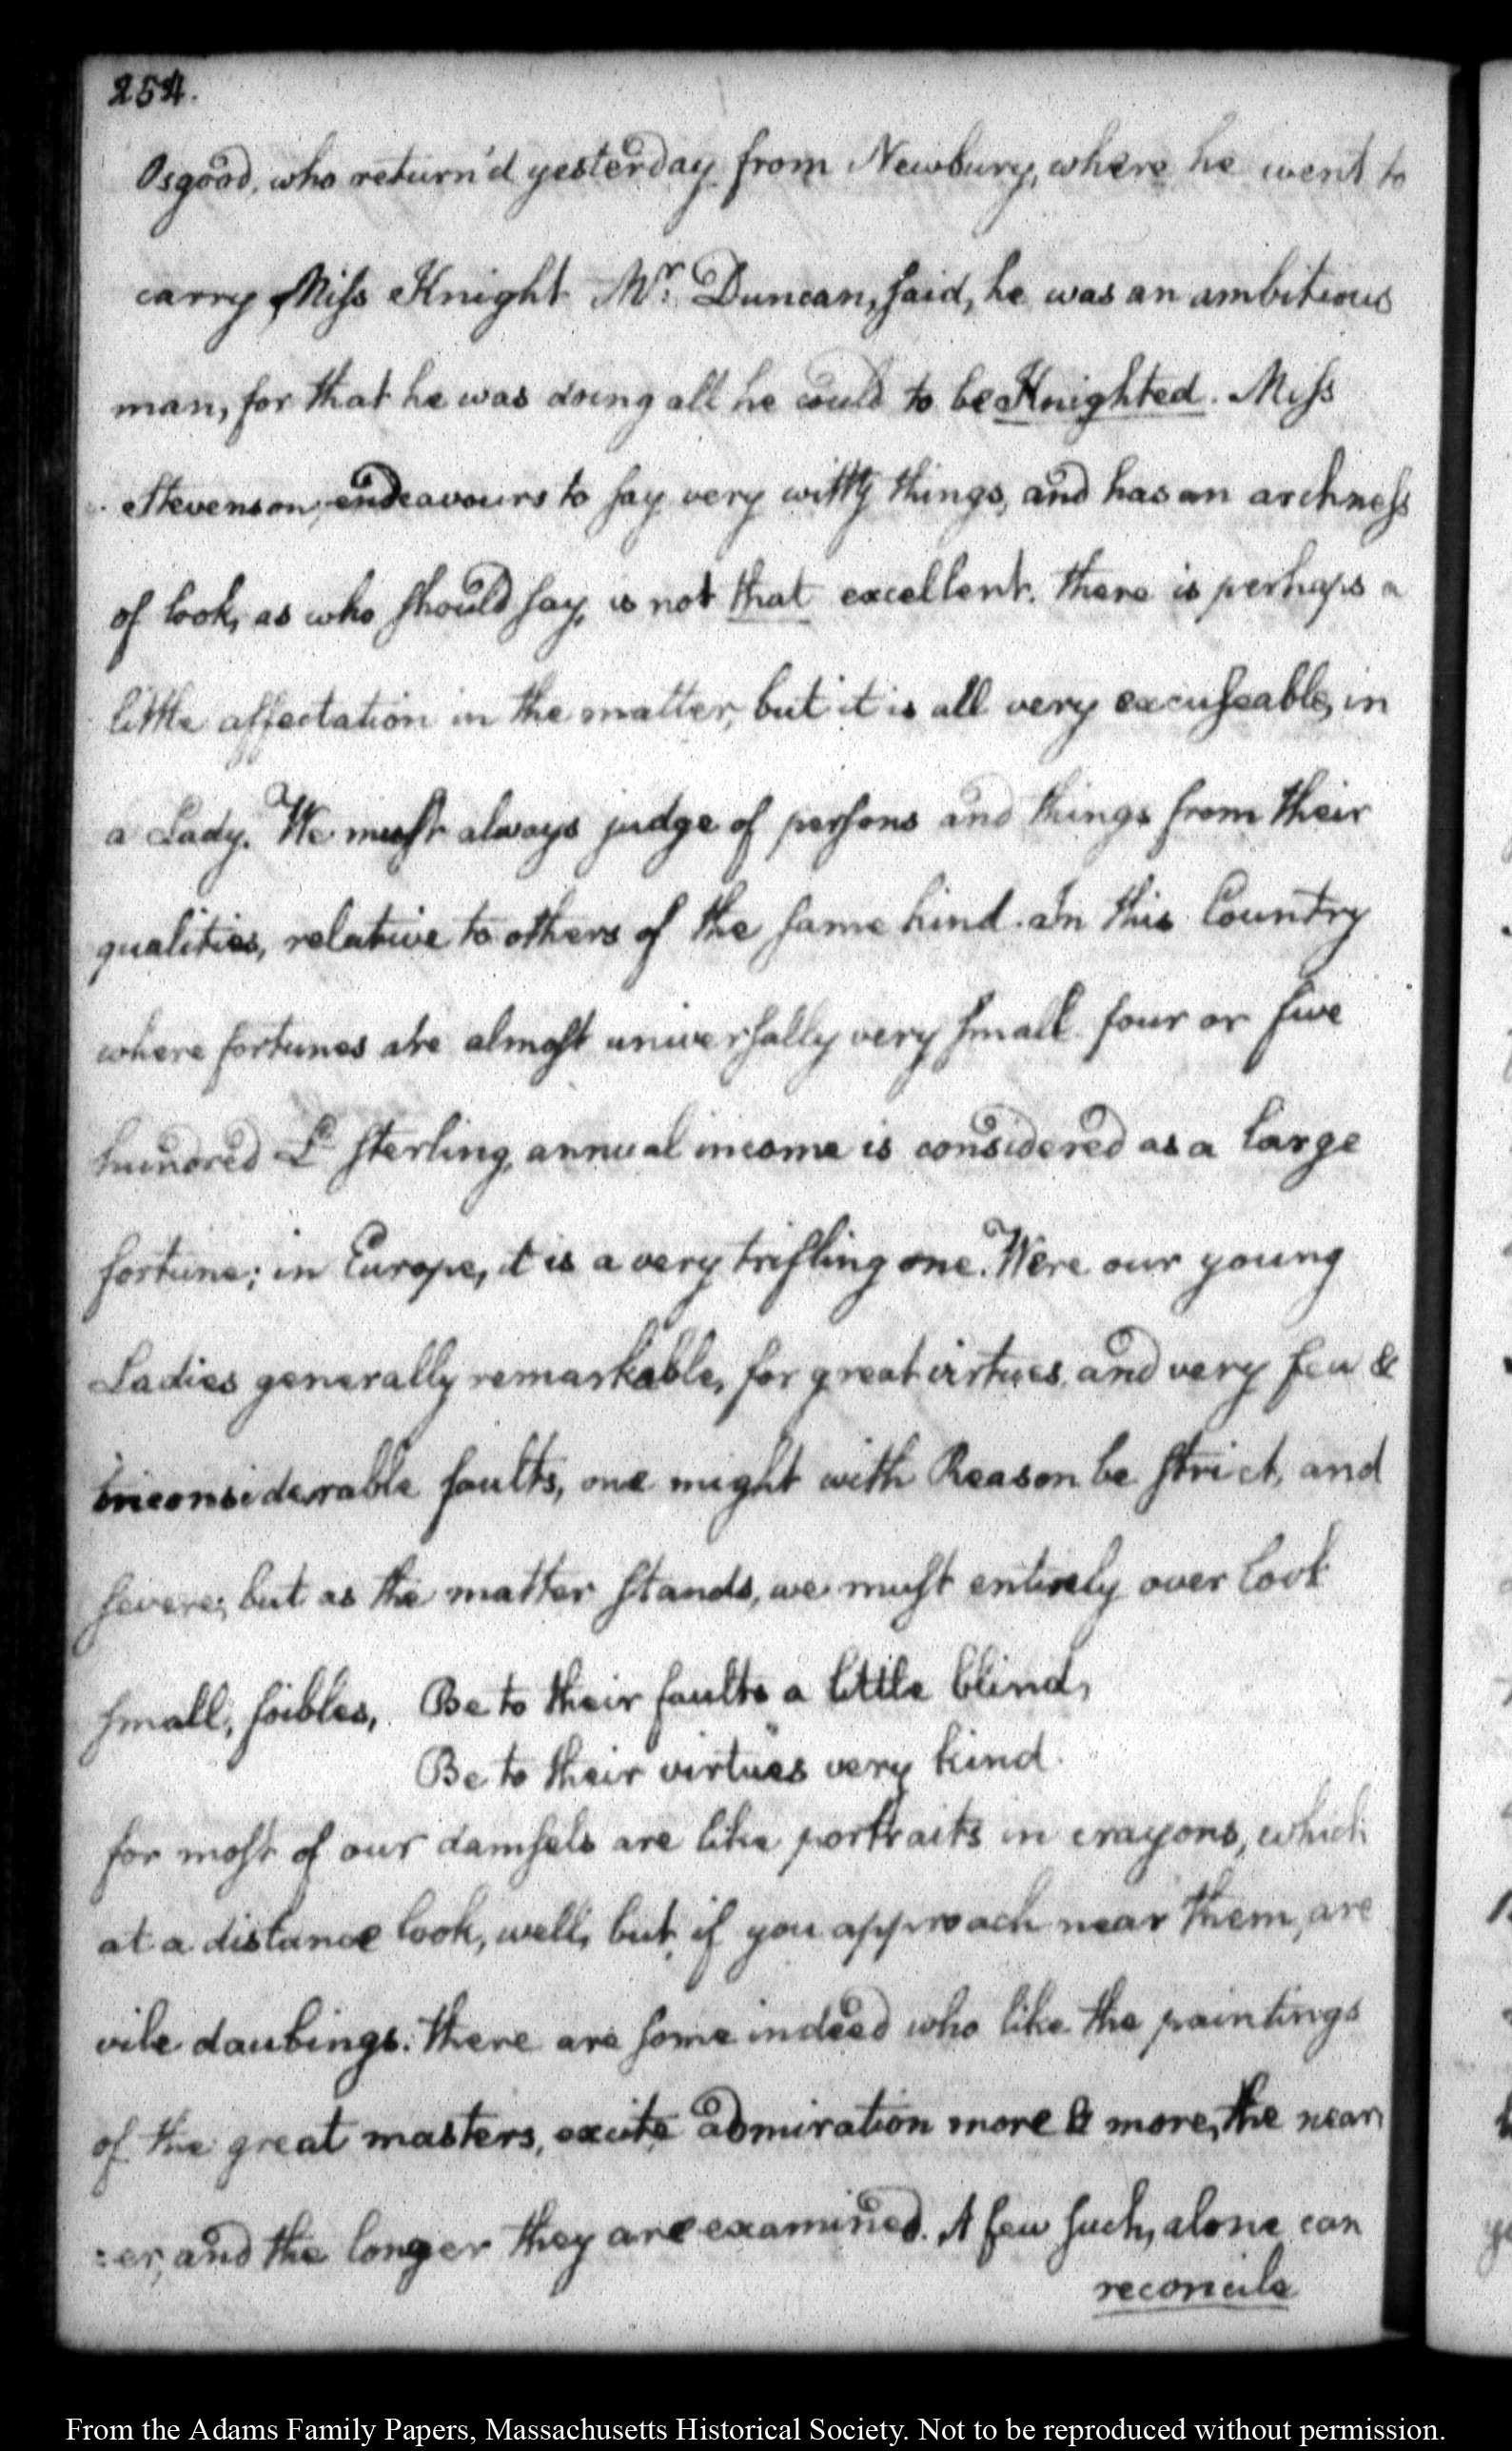 254.
Osgood, who return'd yesterday from Newbury, where he went to
carry Miss Knight Mr: Duncan, said, he was an ambitious
man, for that he was doing all he could to be Knighted. Miss
Stevenson, endeavours to say very witty things, and has an archness
of look, as who should say, is not that excellent. there is perhaps a
little affectation in the matter, but it is all very excuseable, in
a Lady. We must always judge of persons and things from their
qualities, relative to others of the same kind. In this Country
where fortunes are almost universally very small four or five
hundred £ sterling, annual income is considered as a large
fortune; in Europe, it is a very trifling one. Were our young
Ladies generally remarkable, for great virtues, and very few &
inconsiderable faults, one might with Reason be strict, and
severe; but as the matter stands, we must entirely over look
small, foibles,
Be to their faults a little blind,
Be to their virtues very kind.
for most of our damsels are like portraits in crayons, which
at a distance look, well, but if you approach near them, are
vile daubings. there are some indeed who like the paintings
of the great masters, excite admiration more & more, the near
:er, and the longer they are examined. A few such, alone can
reconcile
From the Adams Family Papers, Massachusetts Historical Society. Not to be reproduced without permission.